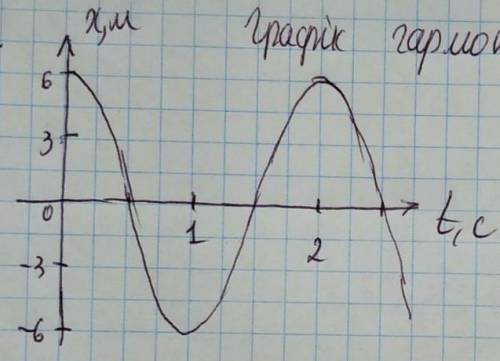 x,м
Графік гармон
6
3
0
1
2
t,c
-3
-6